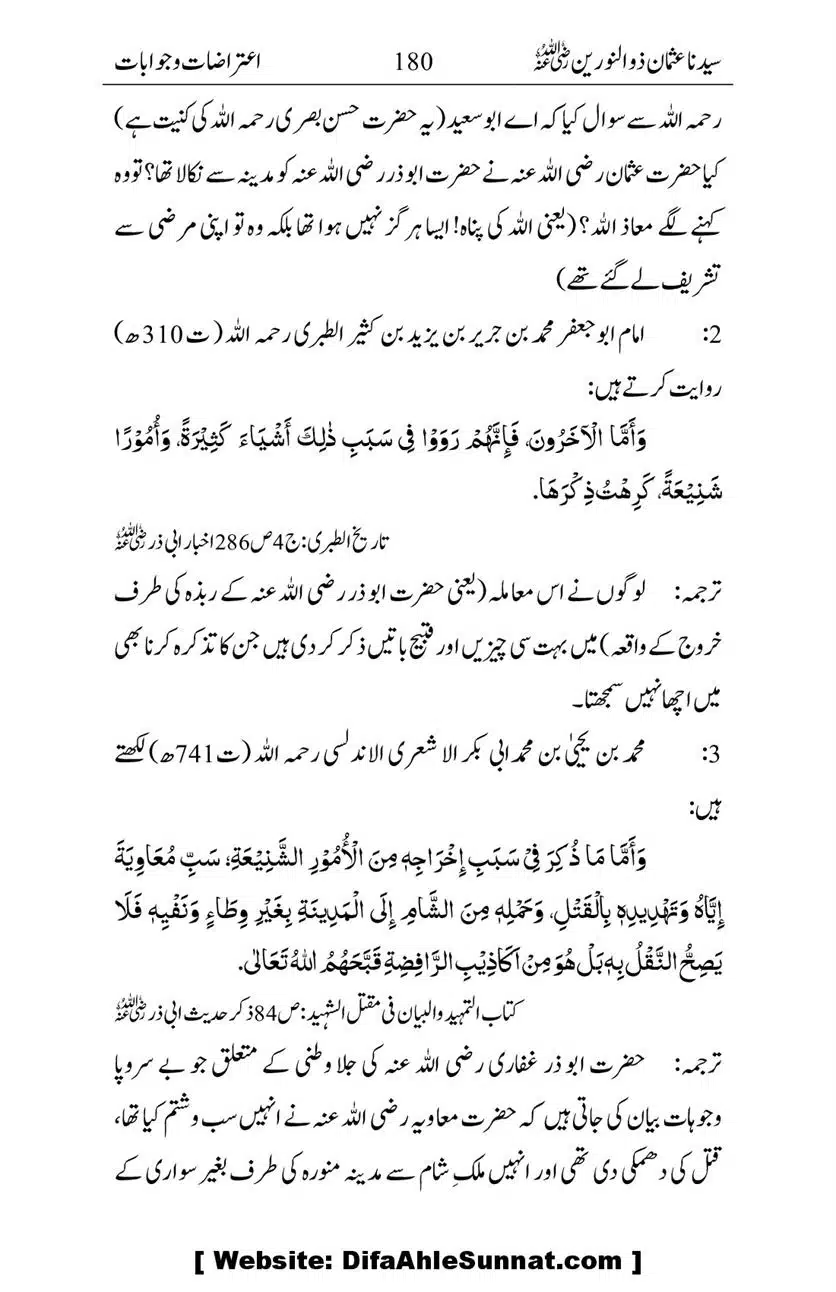 سیدنا عثمان ذوالنورین رضی اللہ عنہ 180 اعتراضات و جوابات
رحمہ اللہ سے سوال کیا کہ اے ابو سعید (یہ حضرت حسن بصری رحمہ اللہ کی کنیت ہے)
کیا حضرت عثمان رضی اللہ عنہ نے حضرت ابوذر رضی اللہ عنہ کو مدینہ سے نکالا تھا؟ تو وہ
کہنے لگے معاذ اللہ؟ (یعنی اللہ کی پناہ! ایسا ہرگز نہیں ہوا تھا بلکہ وہ تو اپنی مرضی سے
تشریف لے گئے تھے)
2: امام ابو جعفر محمد بن جریر بن یزید بن کثیر الطبری رحمہ اللہ (ت310ھ)
روایت کرتے ہیں:
وَأَمَّا الْآخَرُونَ، فَإِنَّهُمْ رَوَوْا فِی سَبَبِ ذٰلِكَ أَشْيَاءَ كَثِيْرَةً، وَأُمُوْرًا
شَنِيْعَةً، كَرِهْتُ ذِكْرَهَا.
تاریخ الطبری: ج4 ص286 اخبار ابی ذر رضی اللہ عنہ
ترجمہ: لوگوں نے اس معاملہ (یعنی حضرت ابوذر رضی اللہ عنہ کے ربذہ کی طرف
خروج کے واقعہ) میں بہت سی چیزیں اور قبیح باتیں ذکر کر دی ہیں جن کا تذکرہ کرنا بھی
میں اچھا نہیں سمجھتا۔
3: محمد بن یحییٰ بن محمد ابی بکر الاشعری الاندلسی رحمہ اللہ (ت741ھ) لکھتے
ہیں:
وَأَمَّا مَا ذُكِرَ فِيْ سَبَبِ إِخْرَاجِهٖ مِنَ الْأُمُوْرِ الشَّنِيْعَةِ؛ سَبِّ مُعَاوِيَةَ
إِيَّاهُ وَتَهْدِيدِهٖ بِالْقَتْلِ، وَحَمْلِهٖ مِنَ الشَّامِ إِلَى الْمَدِينَةِ بِغَيْرِ وِطَاءٍ وَنَفْيِهٖ فَلَا
يَصِحُّ النَّقْلُ بِهٖ بَلْ هُوَ مِنْ اَكَاذِيْبِ الرَّافِضِةِ قَبَّحَهُمُ اللهُ تَعَالىٰ.
کتاب التمہید والبیان فی مقتل الشہید: ص84 ذکر حدیث ابی ذر رضی اللہ عنہ
ترجمہ: حضرت ابوذر غفاری رضی اللہ عنہ کی جلاوطنی کے متعلق جو بے سروپا
وجوہات بیان کی جاتی ہیں کہ حضرت معاویہ رضی اللہ عنہ نے انہیں سب و شتم کیا تھا،
قتل کی دھمکی دی تھی اور انہیں ملکِ شام سے مدینہ منورہ کی طرف بغیر سواری کے
[ Website: DifaAhleSunnat.com ]